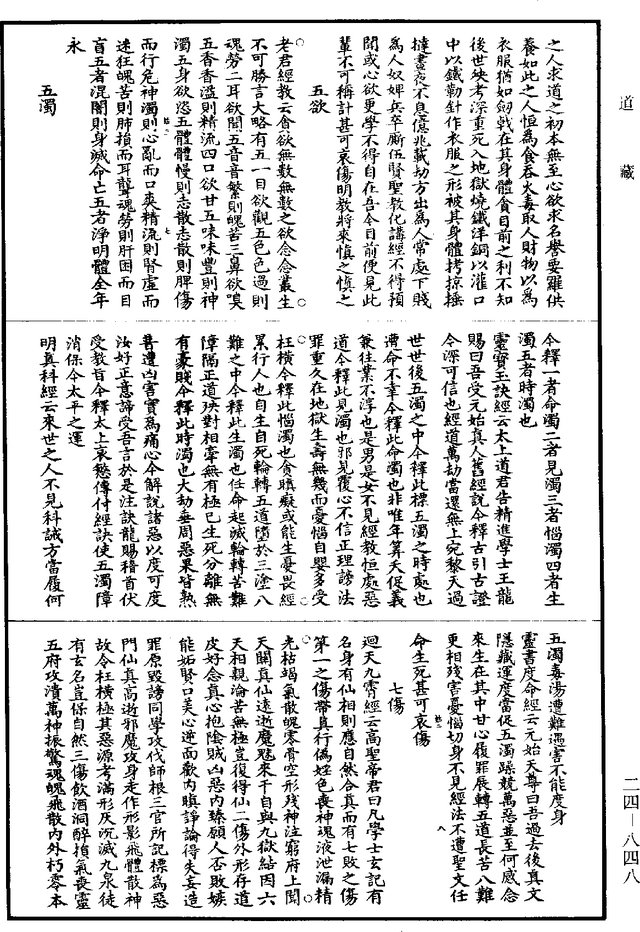 道藏
之人求道之初本無至心欲求名譽要羅供
養如此之人恒為食吞火毒取人財物以為
衣服猶如劒戟在其身體貪目前之利不知
後世殃考深重死入地獄燒鐵洋銅以灌口
中以鐵勒針作衣服之形被其身體拷掠捶
撻晝夜不息億兆載劫方出為人常處下賤
為人奴婢兵卒厮伍賢聖教化講經不得預
聞或心欲更學不得自在吾今目前便見此
輩不可稱計甚可哀傷明教將來慎之慎之
五欲
老君經教云貪欲無數無數之欲念念叢生
不可勝言大略有五一目欲觀五色色過則
魂勞二耳欲聞五音音繁則魄苦三鼻欲嗅
五香香溢則精流四口欲甘五味味豐則神
濁五身欲恣五體體慢則志散志散則脾傷
而行危神濁則心亂而口爽精流則腎虛而
速狂魄苦則肺損而耳聾魂勞則肝困而目
盲五者混閣則身滅命亡五者淨明體全年
永
五濁
今釋一者命濁二者見濁三者惱濁四者生
濁五者時濁也
靈寶玉訣經云太上道君告精進學士王龍
賜曰吾受元始真人舊經說今釋古引古證
今深可信也經道萬劫當還無上宛黎天過
世世後五濁之中今釋此標五濁之時處也
遭命不幸今釋此命濁也非唯年筭夭促義
兼往業不淳也是男是女不見經教恒處惡
道今釋此見濁也邪見覆心不信正理謗法
罪重久在地獄生壽無幾而憂惱自嬰多受
枉橫今釋此惱濁也貪瞋癡或能生憂畏經
累行人也自生自死輪轉五道墮於三塗八
難之中今釋此生濁也任命起滅輪轉苦難
障隔正道殃對相牽無有極已生死分離無
有豪賤今釋此時濁也大劫垂周惡果皆熟
善遭凶害實為痛心今解說諸惡以度可度
汝好正意諦受吾言於是注訣龍賜稽首伏
受教旨今釋太上哀愍傳付經訣使五濁障
消保今太平之運
明真科經云來世之人不見科誡方當履何
五濁毒湯遭難遇害不能度身
靈書度命經云元始天尊曰吾過去後真文
隱藏運度當促五濁躁競萬惡並至何感念
來生在其中甘心履罪展轉五道長苦八難
更相殘害憂惱切身不見經法不遭聖文任
命生死甚可哀傷
七傷
迴天九霄經云高聖帝君曰凡學士玄記有
名身有仙相則應自然合真而有七敗之傷
第一之傷帶真行偽婬色喪神魂液泄漏精
光枯竭氣散魄零骨空形殘神注窮府上聞
天關真仙遠逝魔魅來干自與九獄結因六
天相親淪苦無極豈復得仙二傷外形存道
皮好念真心抱陰賊凶惡內臻願人否敗嫉
能妬賢口美心逆面歡內瞋諍論得失妄造
罪原毀謗同學攻伐師根三官所記標為惡
門仙真高逝邪魔攻身走作形影飛體散神
故令枉橫極其惡源考滿形灰沉滅九泉徒
有玄名豈保自然三傷飲酒洞醉損氣喪靈
五府攻潰萬神振驚魂魄飛散內外朽零本
二四—八四八